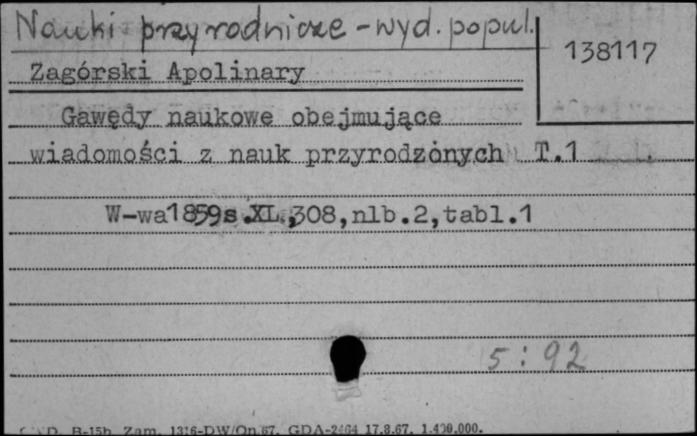 Nauki przyrodnicze - wyd. popul.
138117
Zagórski Apolinary
Gawędy naukowe obejmujące
wiadomości z nauk przyrodzónych T.1
W-wa1859s.XL,308,nlb.2,tabl.1
5:92
D. B-15h Zam. 1316-DW/On/67. GDA-2464 17.8.67. 1.400.000.